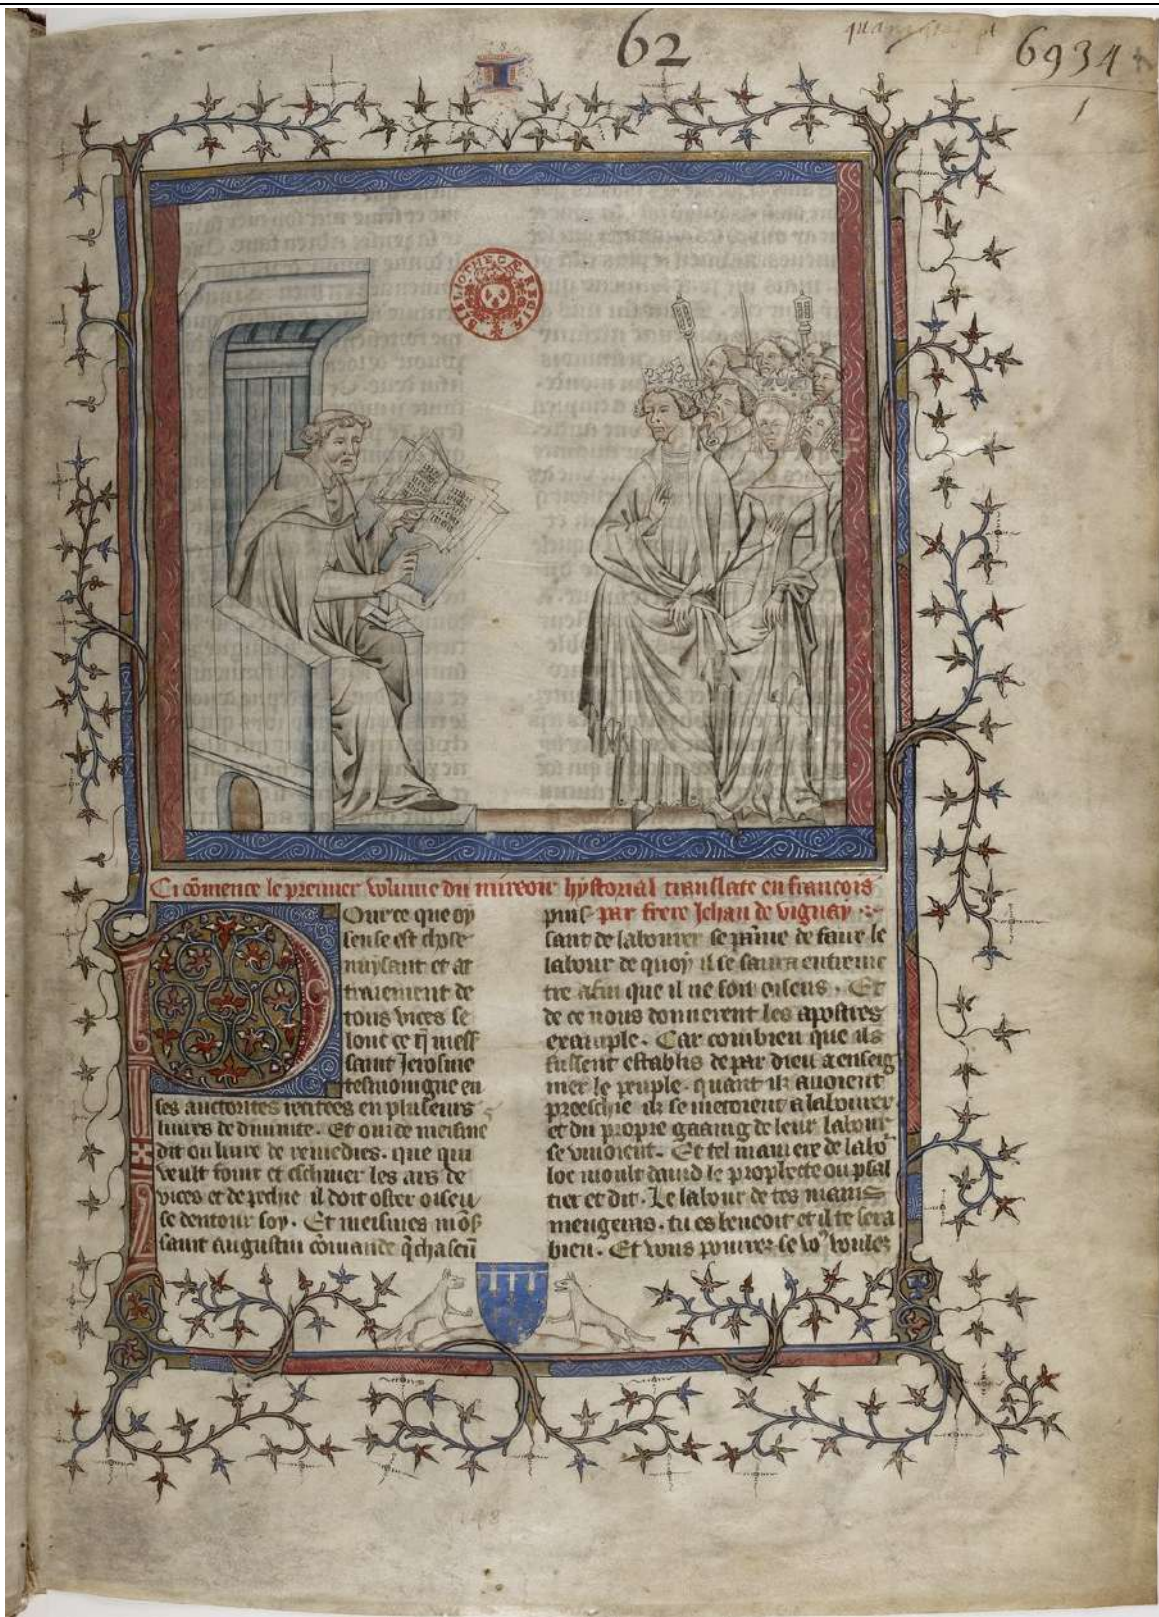 62
6934
1
I
BIBLIOTHECÆ REGIÆ
Ci cōmence le premier volume du mireoir hystorial translate en francois
par frere Jehan de vignay
Our ce que oy
seuse est chose
nuysant et at
traiement de
tous vices se
lonc ce q̄ mess̄
saint Jerosme
tesmoingne en
ses auctorites recitees en pluseurs
liures de diuinite. Et ouide meisme
dit ou liure de remedies. que qui
veult fouir et eschiuer les ars de
vices et de pechie il doit oster oiseu
se dentour soy. Et meismes mōs̄
saint augustin cōmande q̄ chascū
puis
sant de labourer se paīne de faire le
labour de quoy il se saura entreme
tre afin que il ne soit oiseus. Et
de ce nous donnerent les apostres
example. Car combien que ils
fussent establis de par dieu a enseig
nier le peuple. quant ilz auoient
preeschie ilz se metoient a labourer
et du propre gaaing de leur labour
se viuoient. Et tel maniere de labo
loe moult dauid le prophette ou psal
tier et dit. Le labour de tes mains
mengeras. tu es beneoit et il te sera
bien. Et vous pouurez se vo voulez